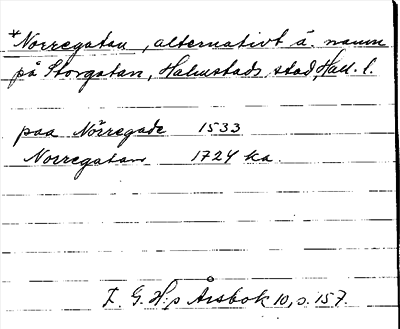 *Norregatan, alternativt ä. namn
på Storgatan, Halmstads stad, Hall. l.
paa Nörregade 1533
Norregatan 1724 ka.
F. G. H:s Årsbok 10, s. 157.